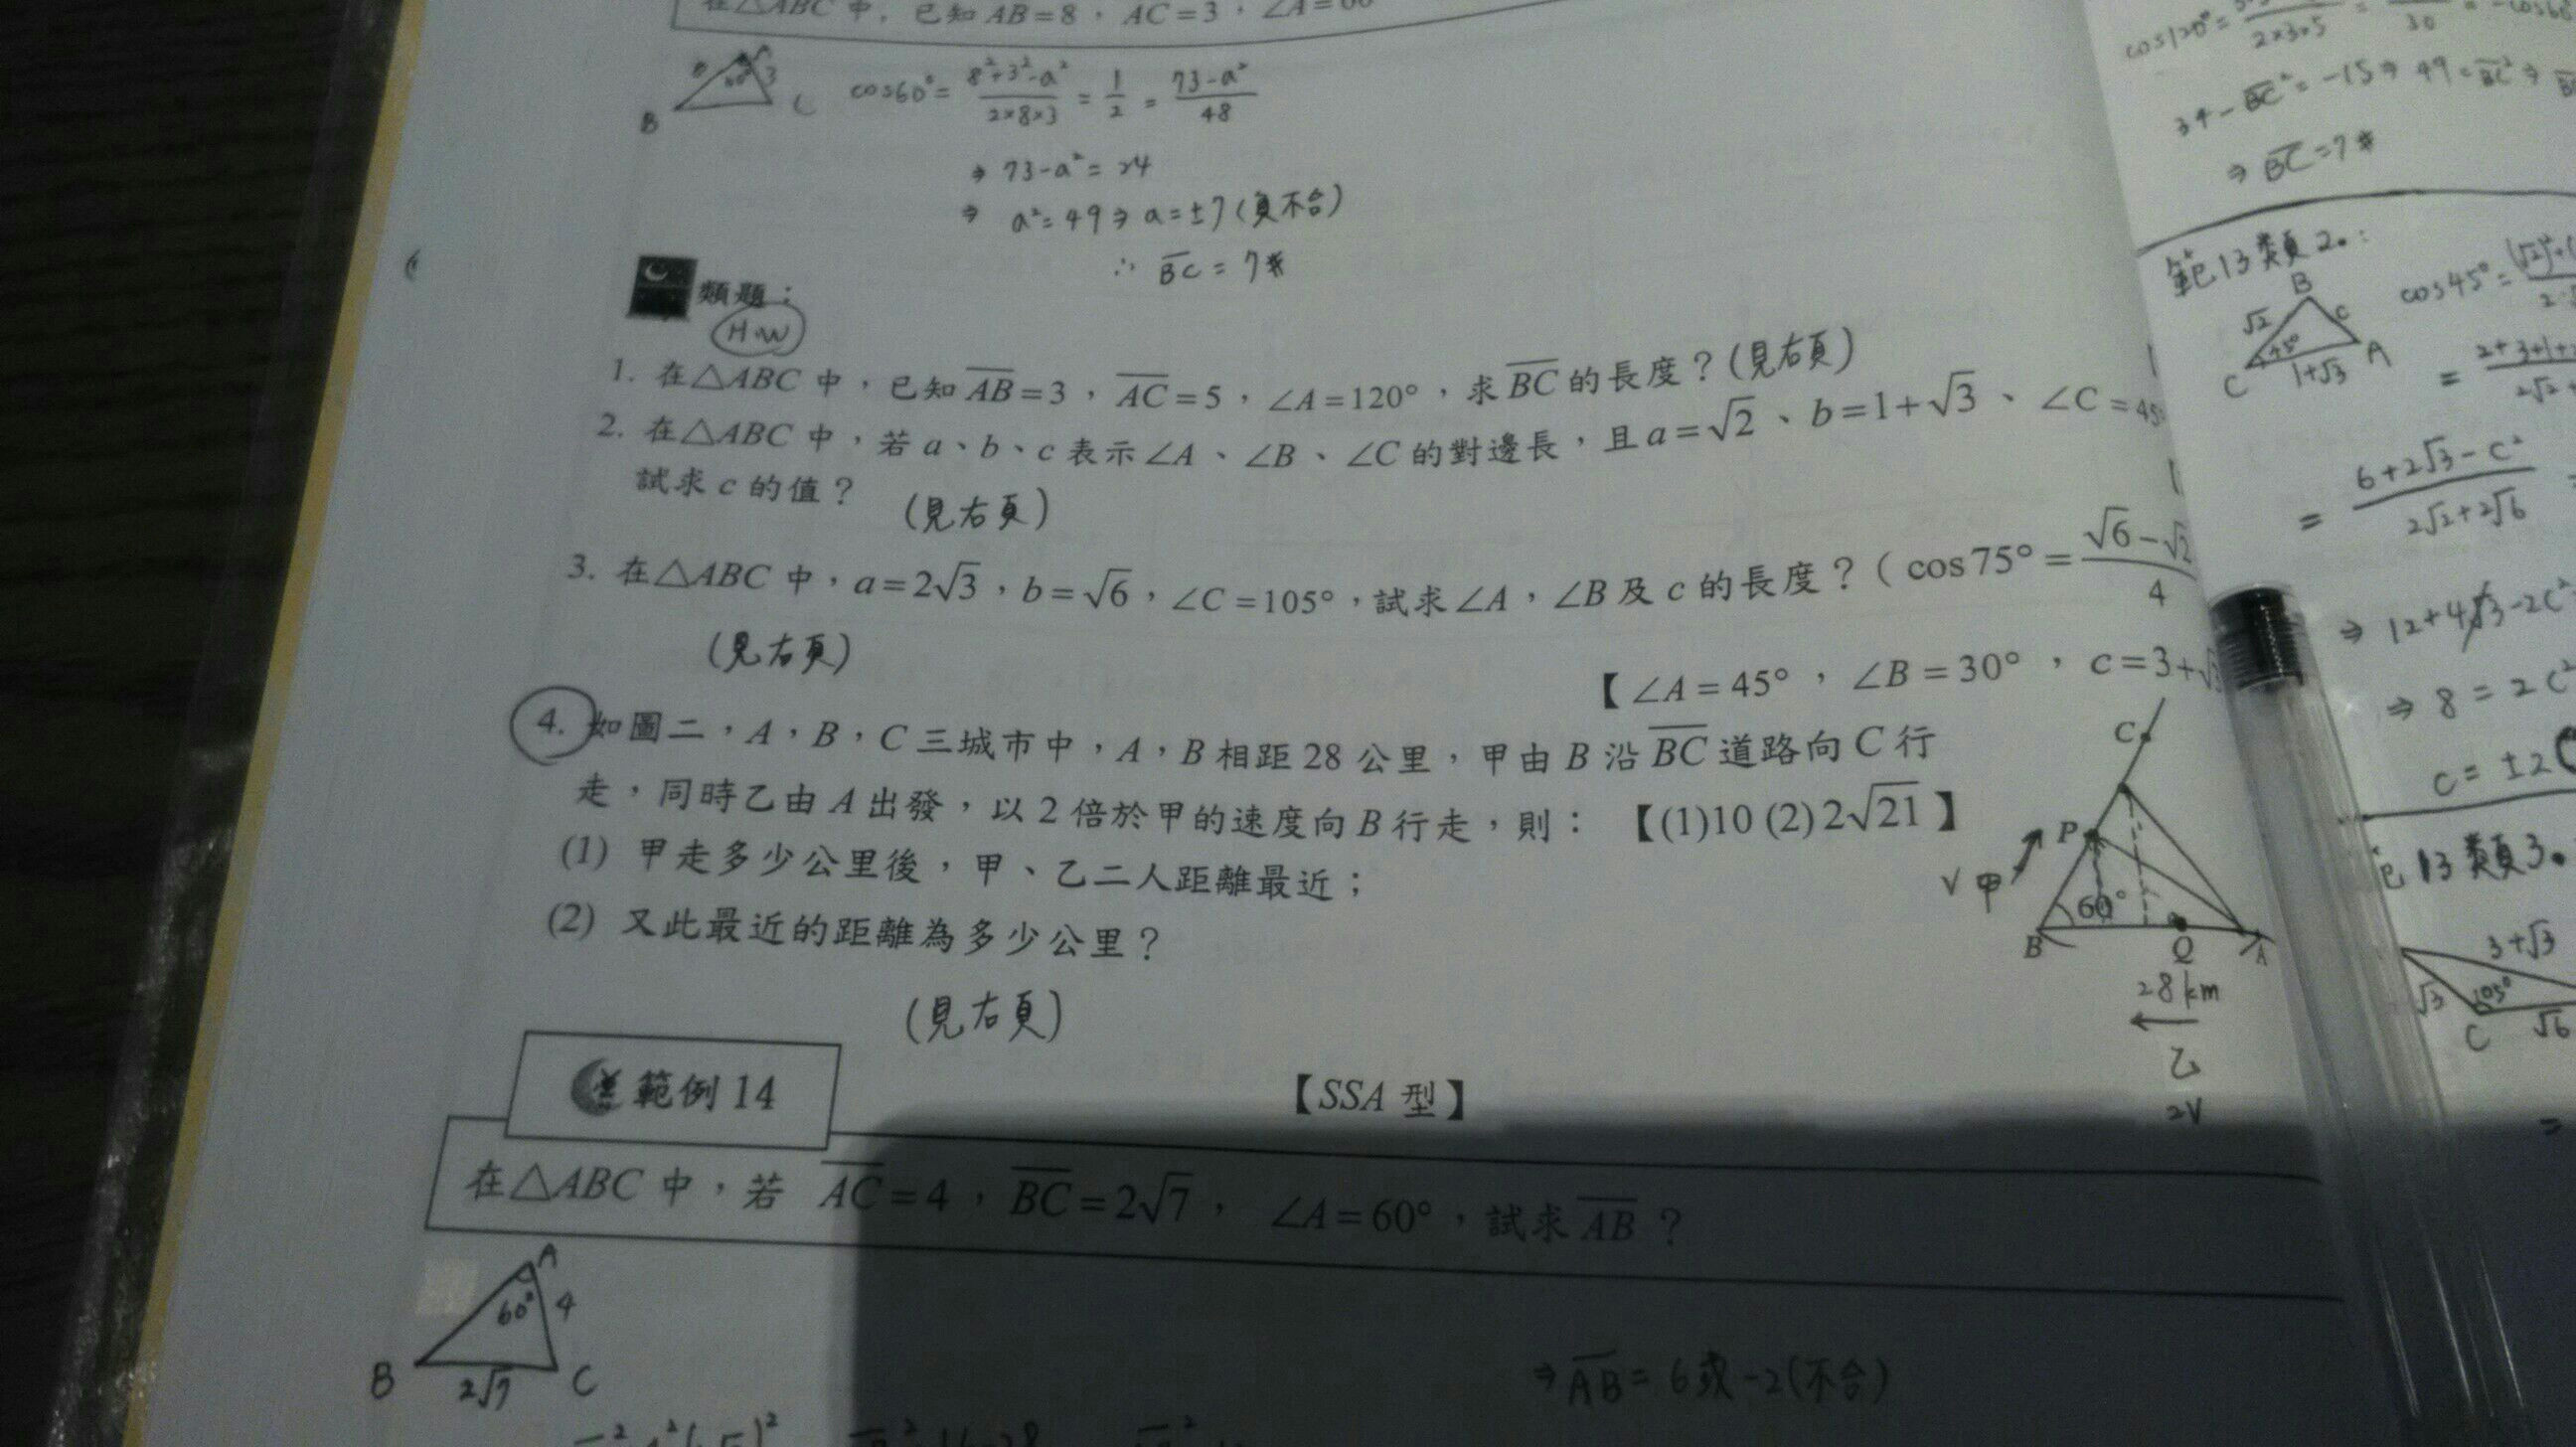 在△ABC 中，已知 AB=8，AC=3，∠A=60
B C 60° 3
cos60°= 8²+3²-a² / 2×8×3 = 1/2 = 73-a² / 48
⇒ 73-a²=24
⇒ a²=49⇒a=±7(負不合)
∴ BC=7#
類題：
HW
1. 在△ABC 中，已知 AB=3，AC=5，∠A=120°，求 BC 的長度？(見右頁)
2. 在△ABC 中，若 a、b、c 表示 ∠A、∠B、∠C 的對邊長，且 a=√2、b=1+√3、∠C=45
試求 c 的值？ (見右頁)
3. 在△ABC 中，a=2√3，b=√6，∠C=105°，試求 ∠A，∠B 及 c 的長度？( cos75°= √6-√2 / 4
(見右頁)
【∠A=45°，∠B=30°，c=3+√3
4. 如圖二，A，B，C 三城市中，A，B 相距 28 公里，甲由 B 沿 BC 道路向 C 行
走，同時乙由 A 出發，以 2 倍於甲的速度向 B 行走，則： 【(1)10 (2)2√21】
(1) 甲走多少公里後，甲、乙二人距離最近；
(2) 又此最近的距離為多少公里？
(見右頁)
C
P
V 甲
60°
B Q A
28km
乙
2V
範例 14
【SSA 型】
在△ABC 中，若 AC=4，BC=2√7，∠A=60°，試求 AB？
A
60° 4
B 2√7 C
⇒AB=6或-2(不合)
cos120°= 2×3×5 = 30 = -cos60
34-BC²=-15⇒49=BC²⇒
⇒BC=7#
範13類2.:
B
√2 c
45°
C 1+√3 A
cos45°=
= 2+3+1+
2√2
= 6+2√3-c² / 2√2+2√6
⇒ 12+4√3-2c²
⇒ 8=2c²
c=±2(
13類3.
3+√3
√3 105° √6
C
=